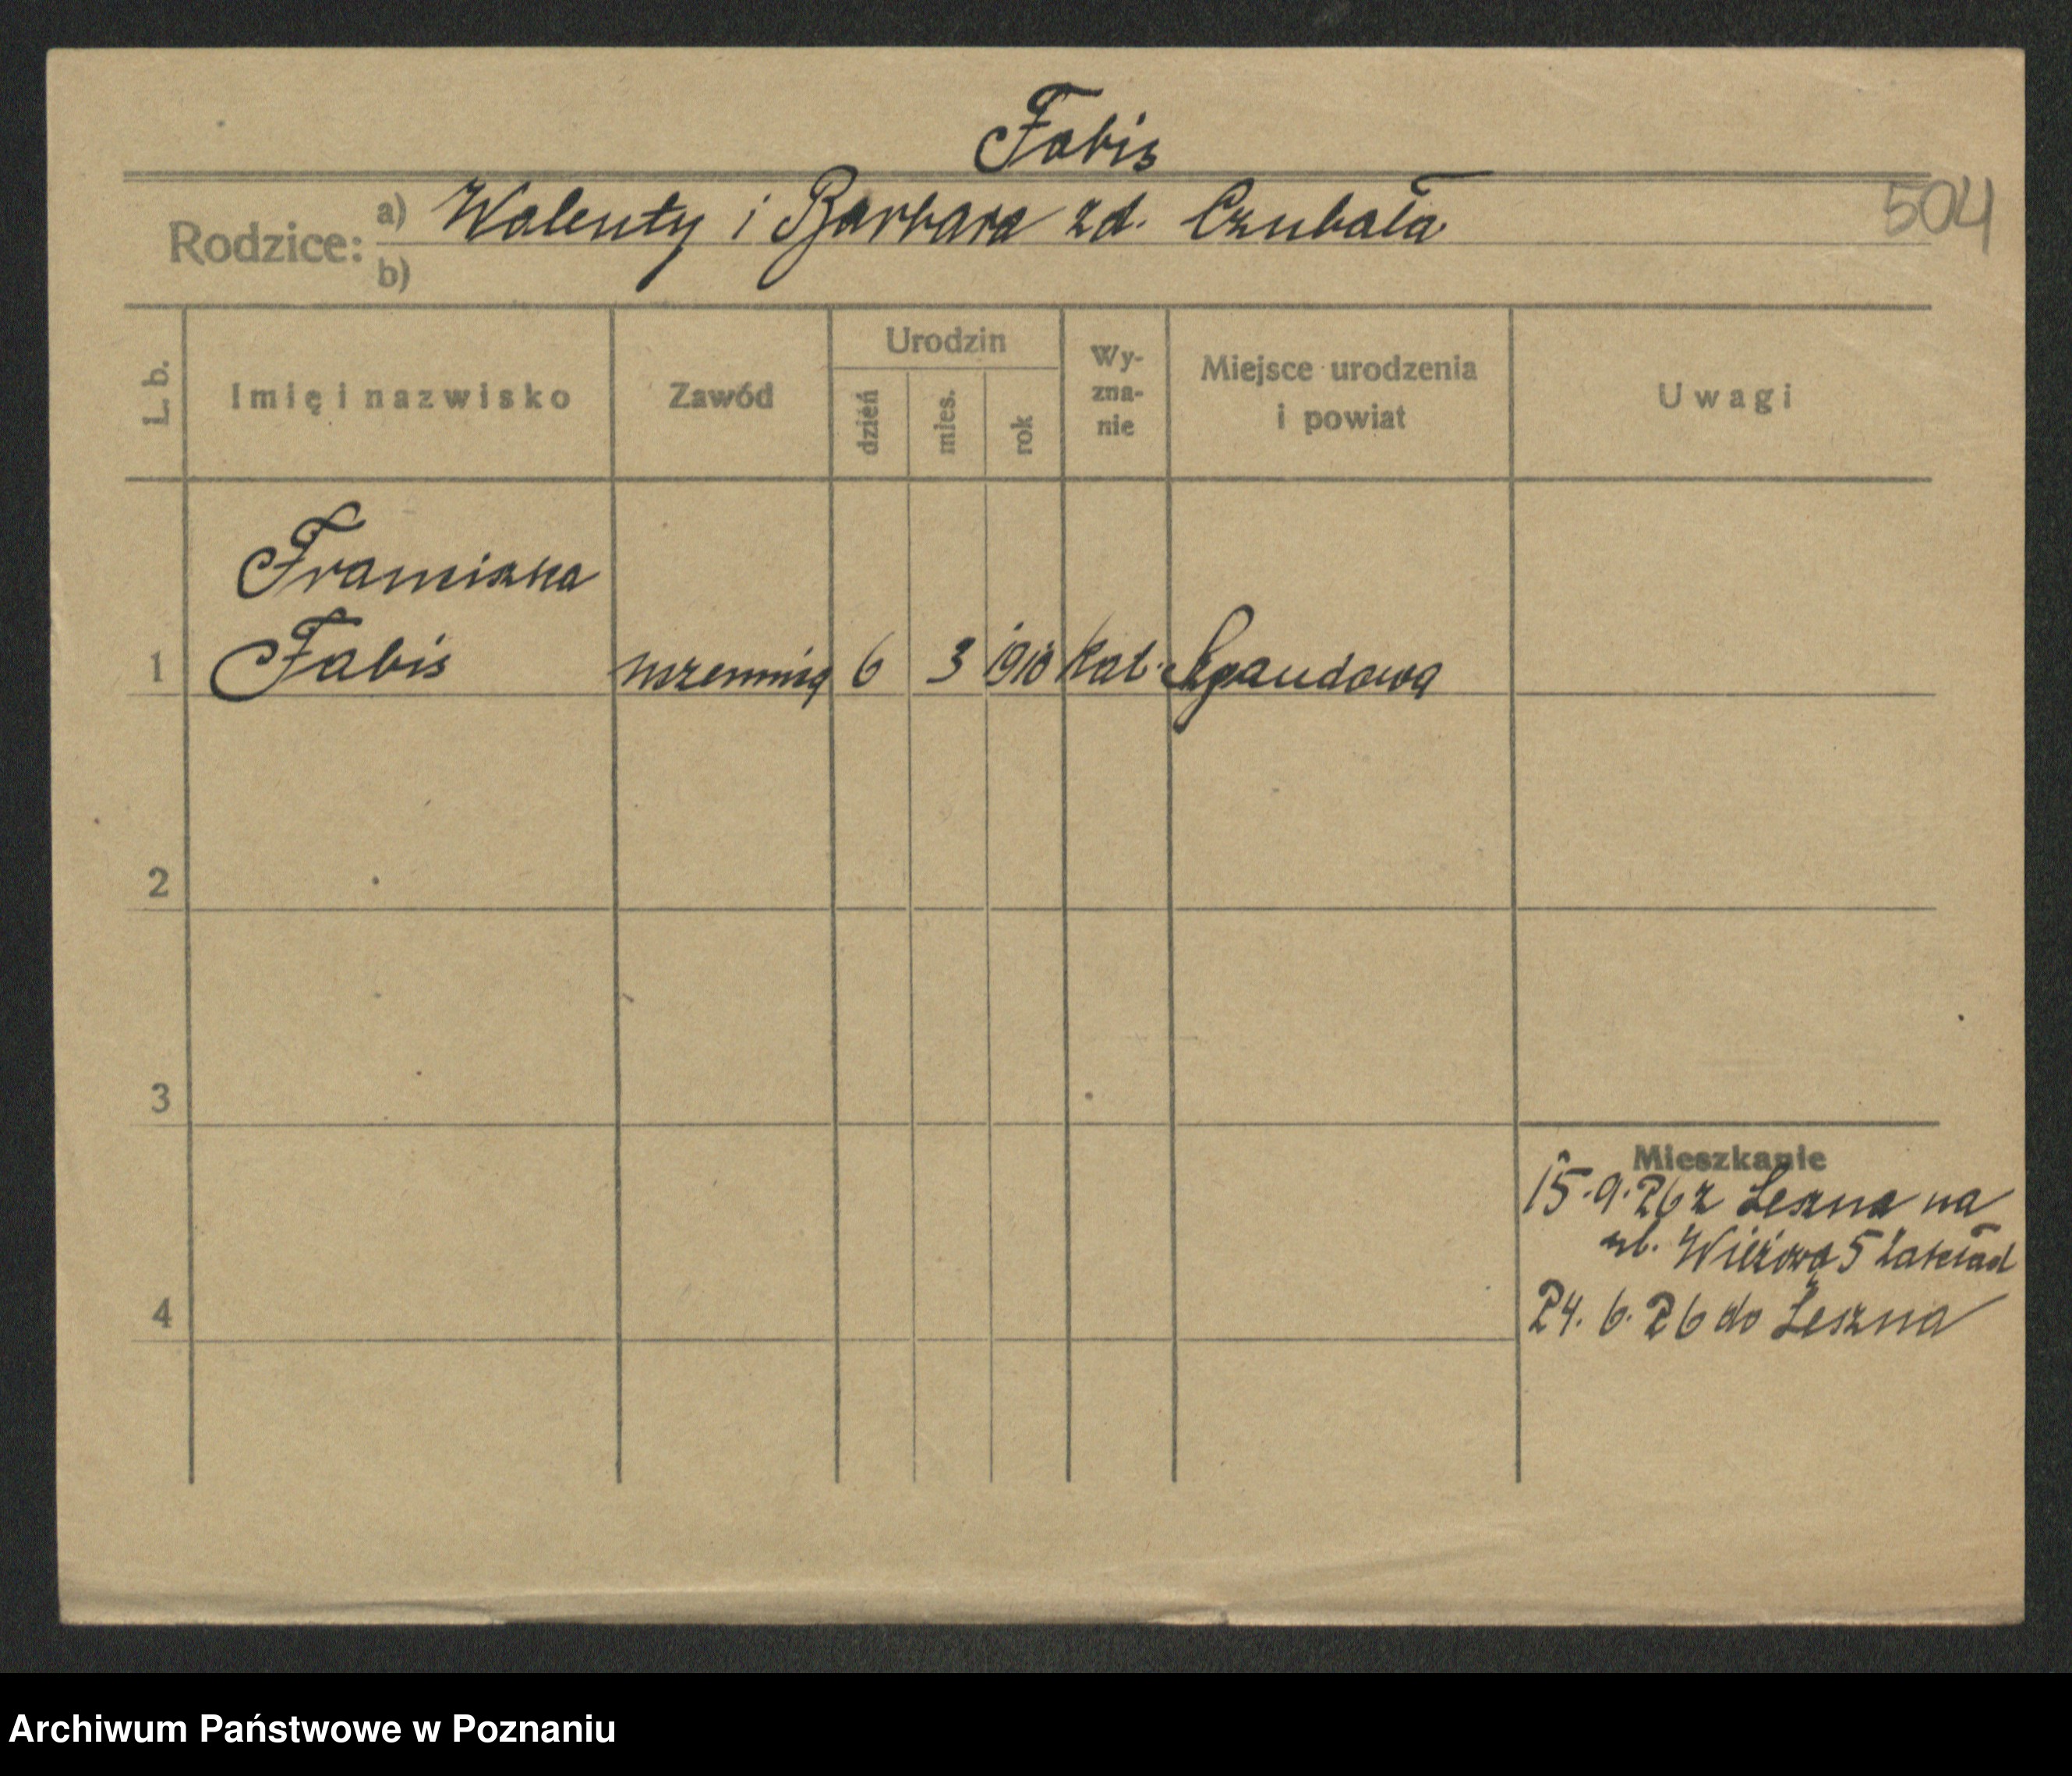 Fabis
504
Rodzice: a) Walenty i Barbara zd. Czubała
b)
L. b. Imię i nazwisko Zawód Urodzin dzień mies. rok Wy-zna-nie Miejsce urodzenia i powiat Uwagi
Franciszka
1 Fabis 6 3 1910 kat. Spandowa
2
3
Mieszkanie
15.9.26 z Leszna na
ul. Wieżowa 5 Zakład
4 24.6.26 do Leszna
Archiwum Państwowe w Poznaniu